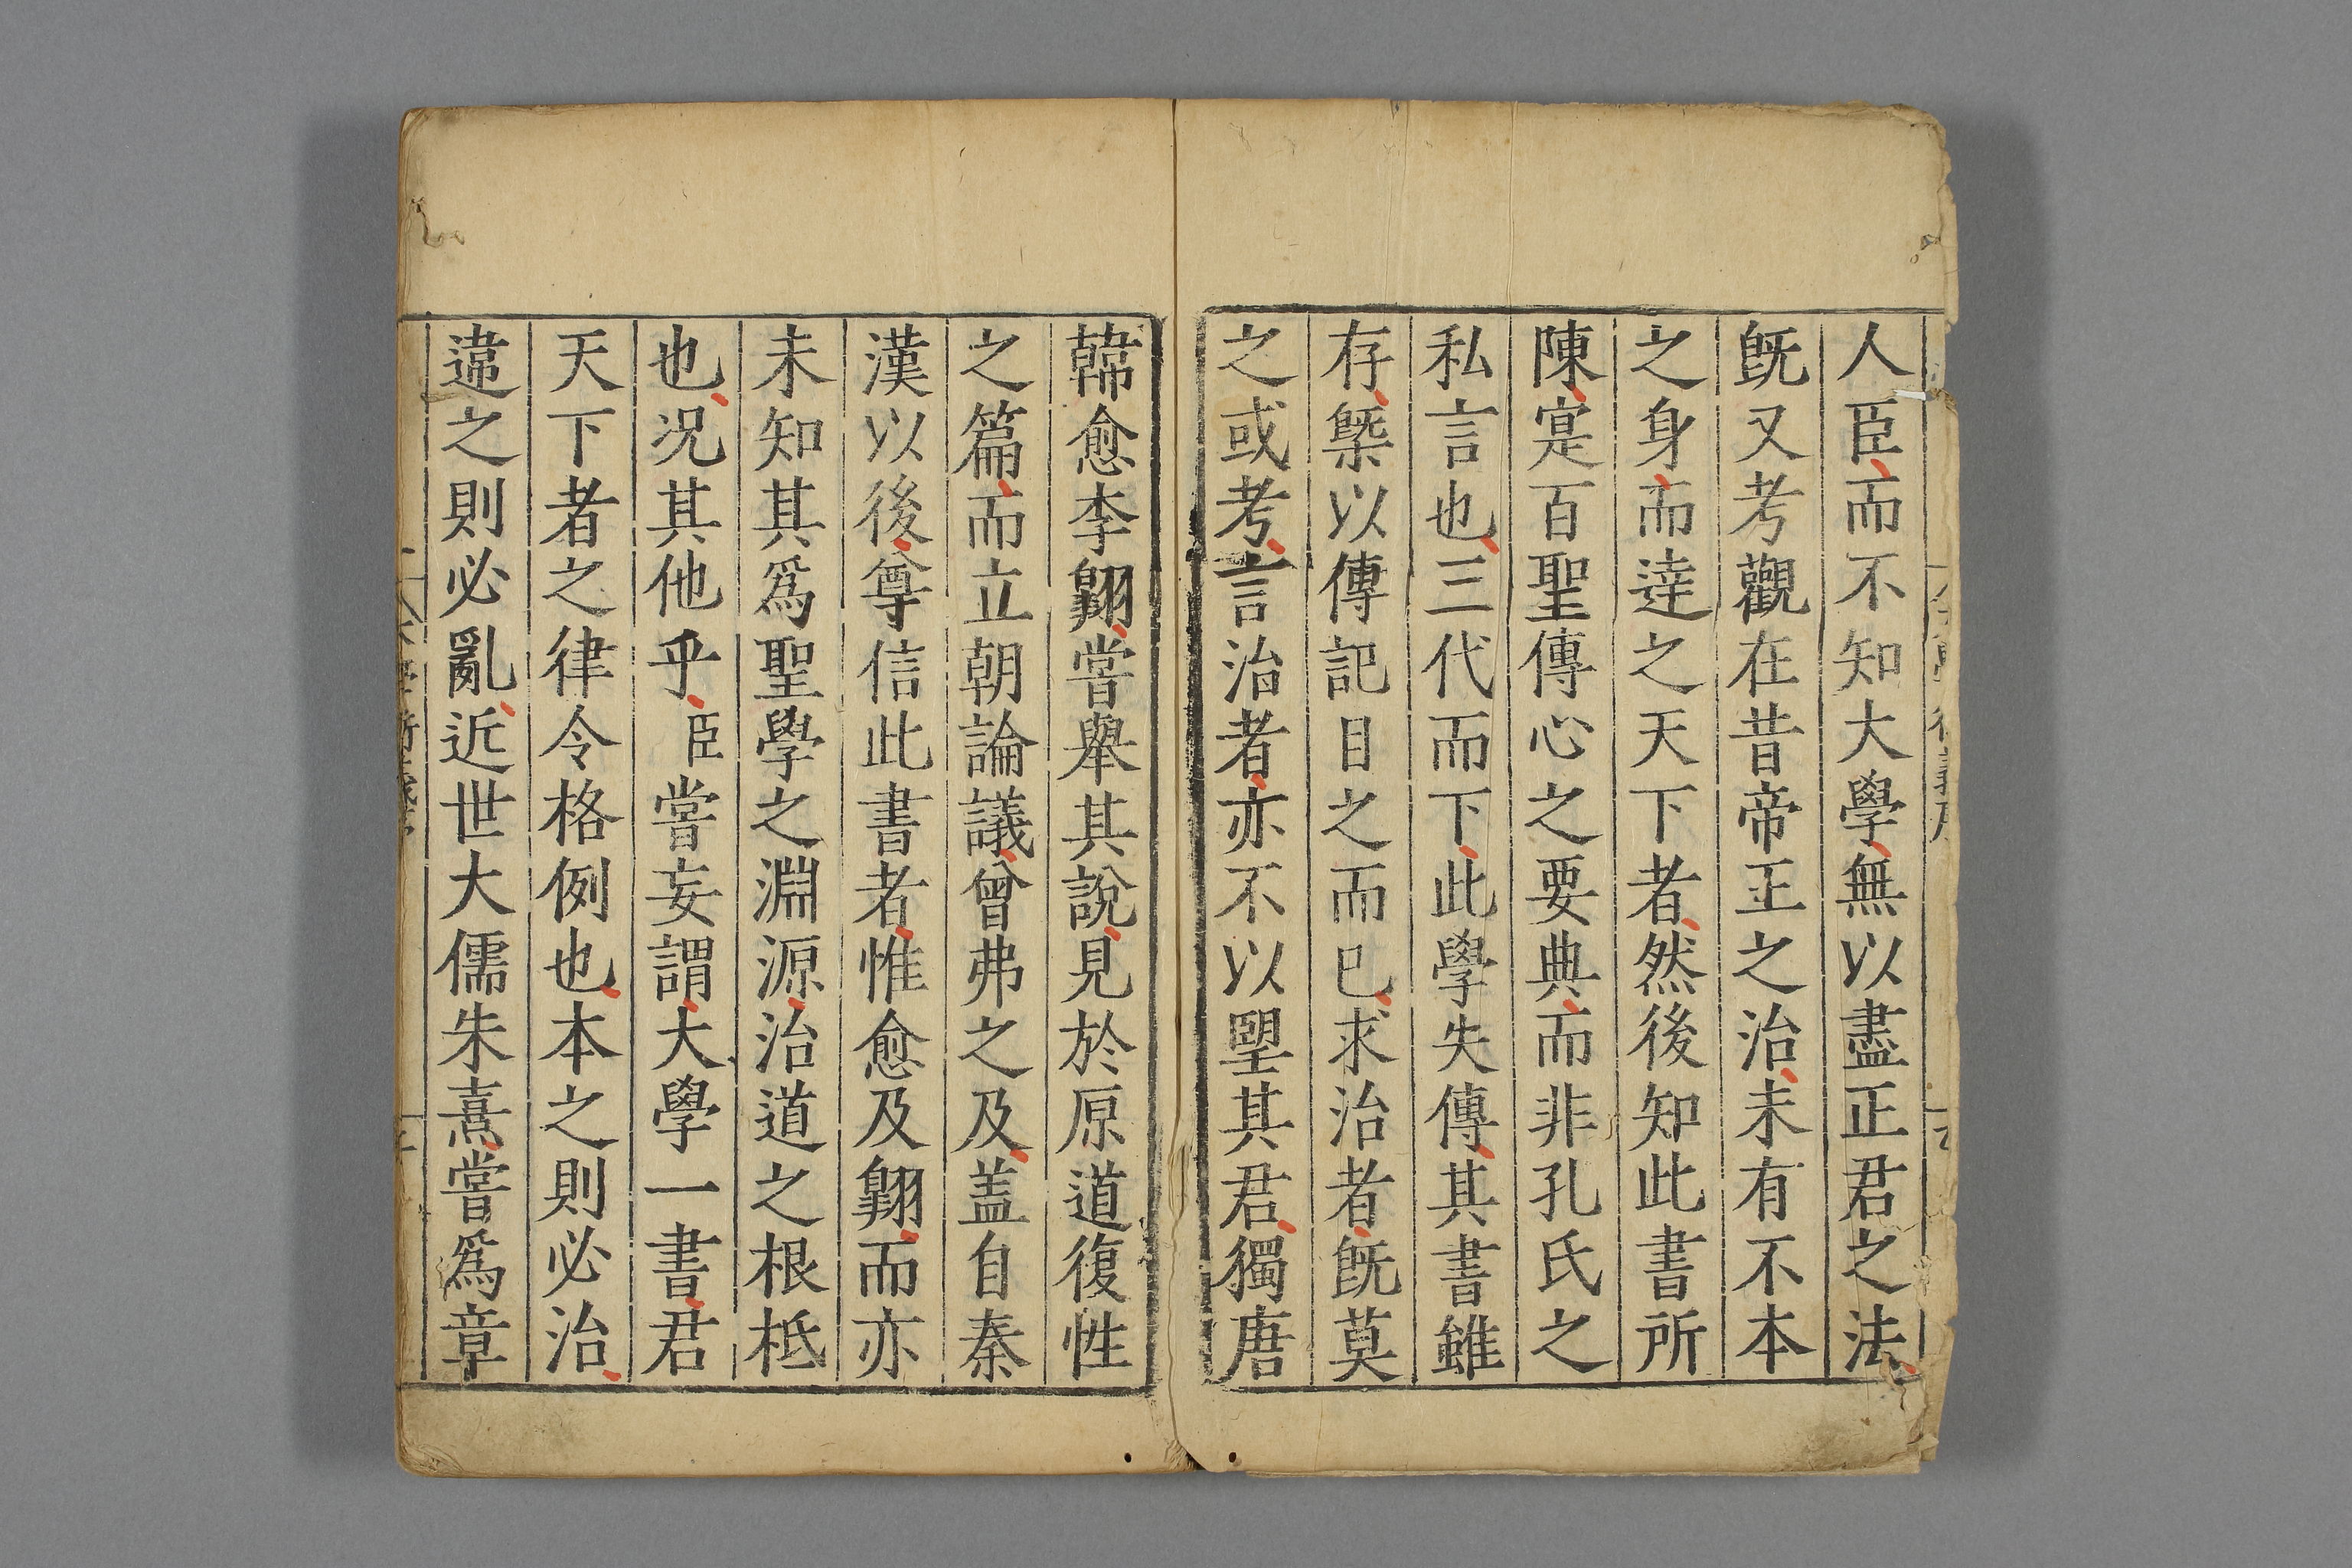 人臣而不知大學無以盡正君之法
旣又考觀在昔帝王之治未有不本
之身而達之天下者然後知此書所
陳寔百聖傳心之要典而非孔氏之
私言也三代而下此學失傳其書雖
存槩以傳記目之而已求治者旣莫
之或考言治者亦不以朢其君獨唐
韓愈李翺嘗舉其說見於原道復性
之篇而立朝論議曾弗之及盖自秦
漢以後尊信此書者惟愈及翺而亦
未知其爲聖學之淵源治道之根柢
也况其他乎臣嘗妄謂大學一書君
天下者之律令格例也本之則必治
違之則必亂近世大儒朱熹嘗爲章